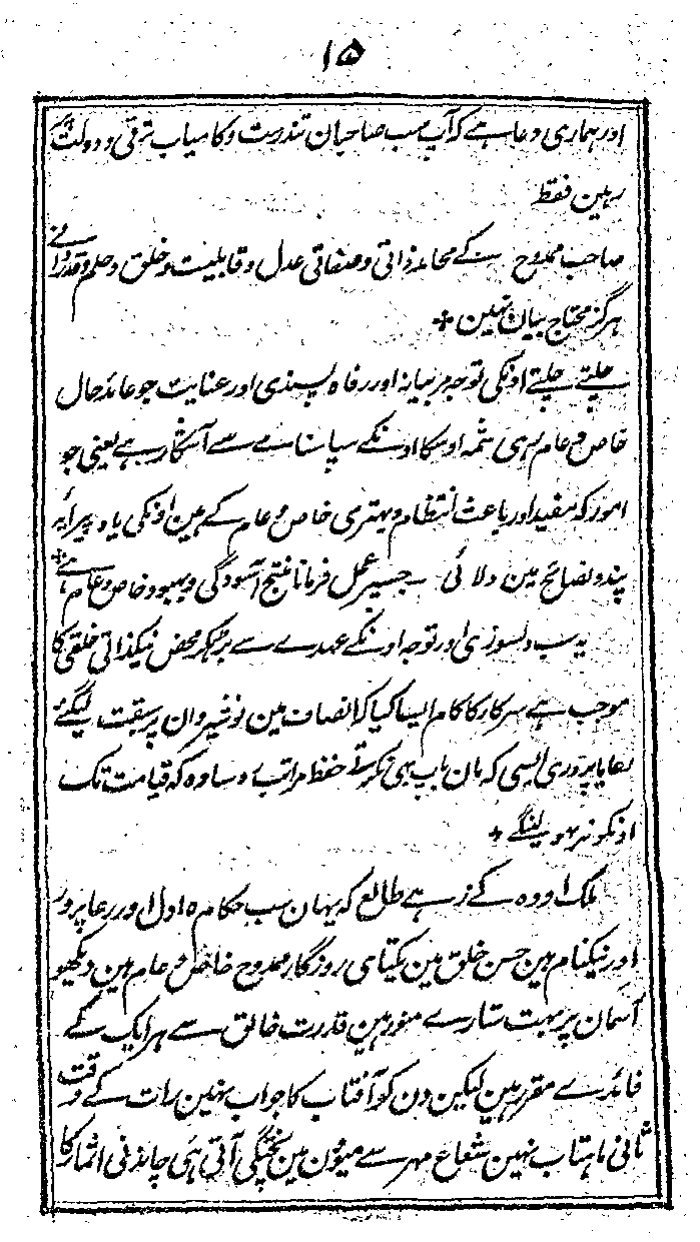 ۱۵
اور ہماری دعا ہے کہ آپ سب صاحبان تندرست و کامیاب ترقی و دولت
رہین فقط
صاحب ممدوح کے محامد ذاتی و صفاتی عدل و قابلیت و خلق و حلم و قدردانی
ہرگز محتاج بیان نہین +
چلتے چلتے اونکی توجہ مربیانہ اور رفاہ پسندی اور عنایت جو عائد حال
خاص و عام رہی شمہ اوسکا اونکے سپاسنامے سے آشکار ہے یعنی جو
امور کہ مفید اور باعث انتظام و بہتری خاص و عام کے ہین اونکی یاد پیرایہ
پند و نصائح مین دلائی جسپر عمل فرمانا منتج آسودگی و بہبود خاص و عام ہے +
یہ سب دلسوزی اور توجہ اونکے عہدے سے بڑہکر محض نیکذاتی خلقی کا
موجب ہے سرکار کا کام ایسا کیا کہ انصاف مین نوشیروان پر سبقت لیگئے
رعایا پروری ایسی کہ مان باپ بہی نکرتے حفظ مراتب وہ کہ قیامت تک
اونکو نہ بہولینگے +
ملک اودہ کے زہے طالع کہ یہان سب حکام اول اور رعاپرور
اور نیکنام ہین حسن خلق مین یکتای روزگار ممدوح خاص و عام ہین دیکھو
آسمان پر بہت ستارے منور ہین قدرت خالق سے ہر ایک کے
فائدے مقرر ہین لیکن دن کو آفتاب کا جواب نہین رات کے وقت
ثانی ماہتاب نہین شعاع مہر سے میوون مین پختگی آتی ہی چاندنی اثمار کا